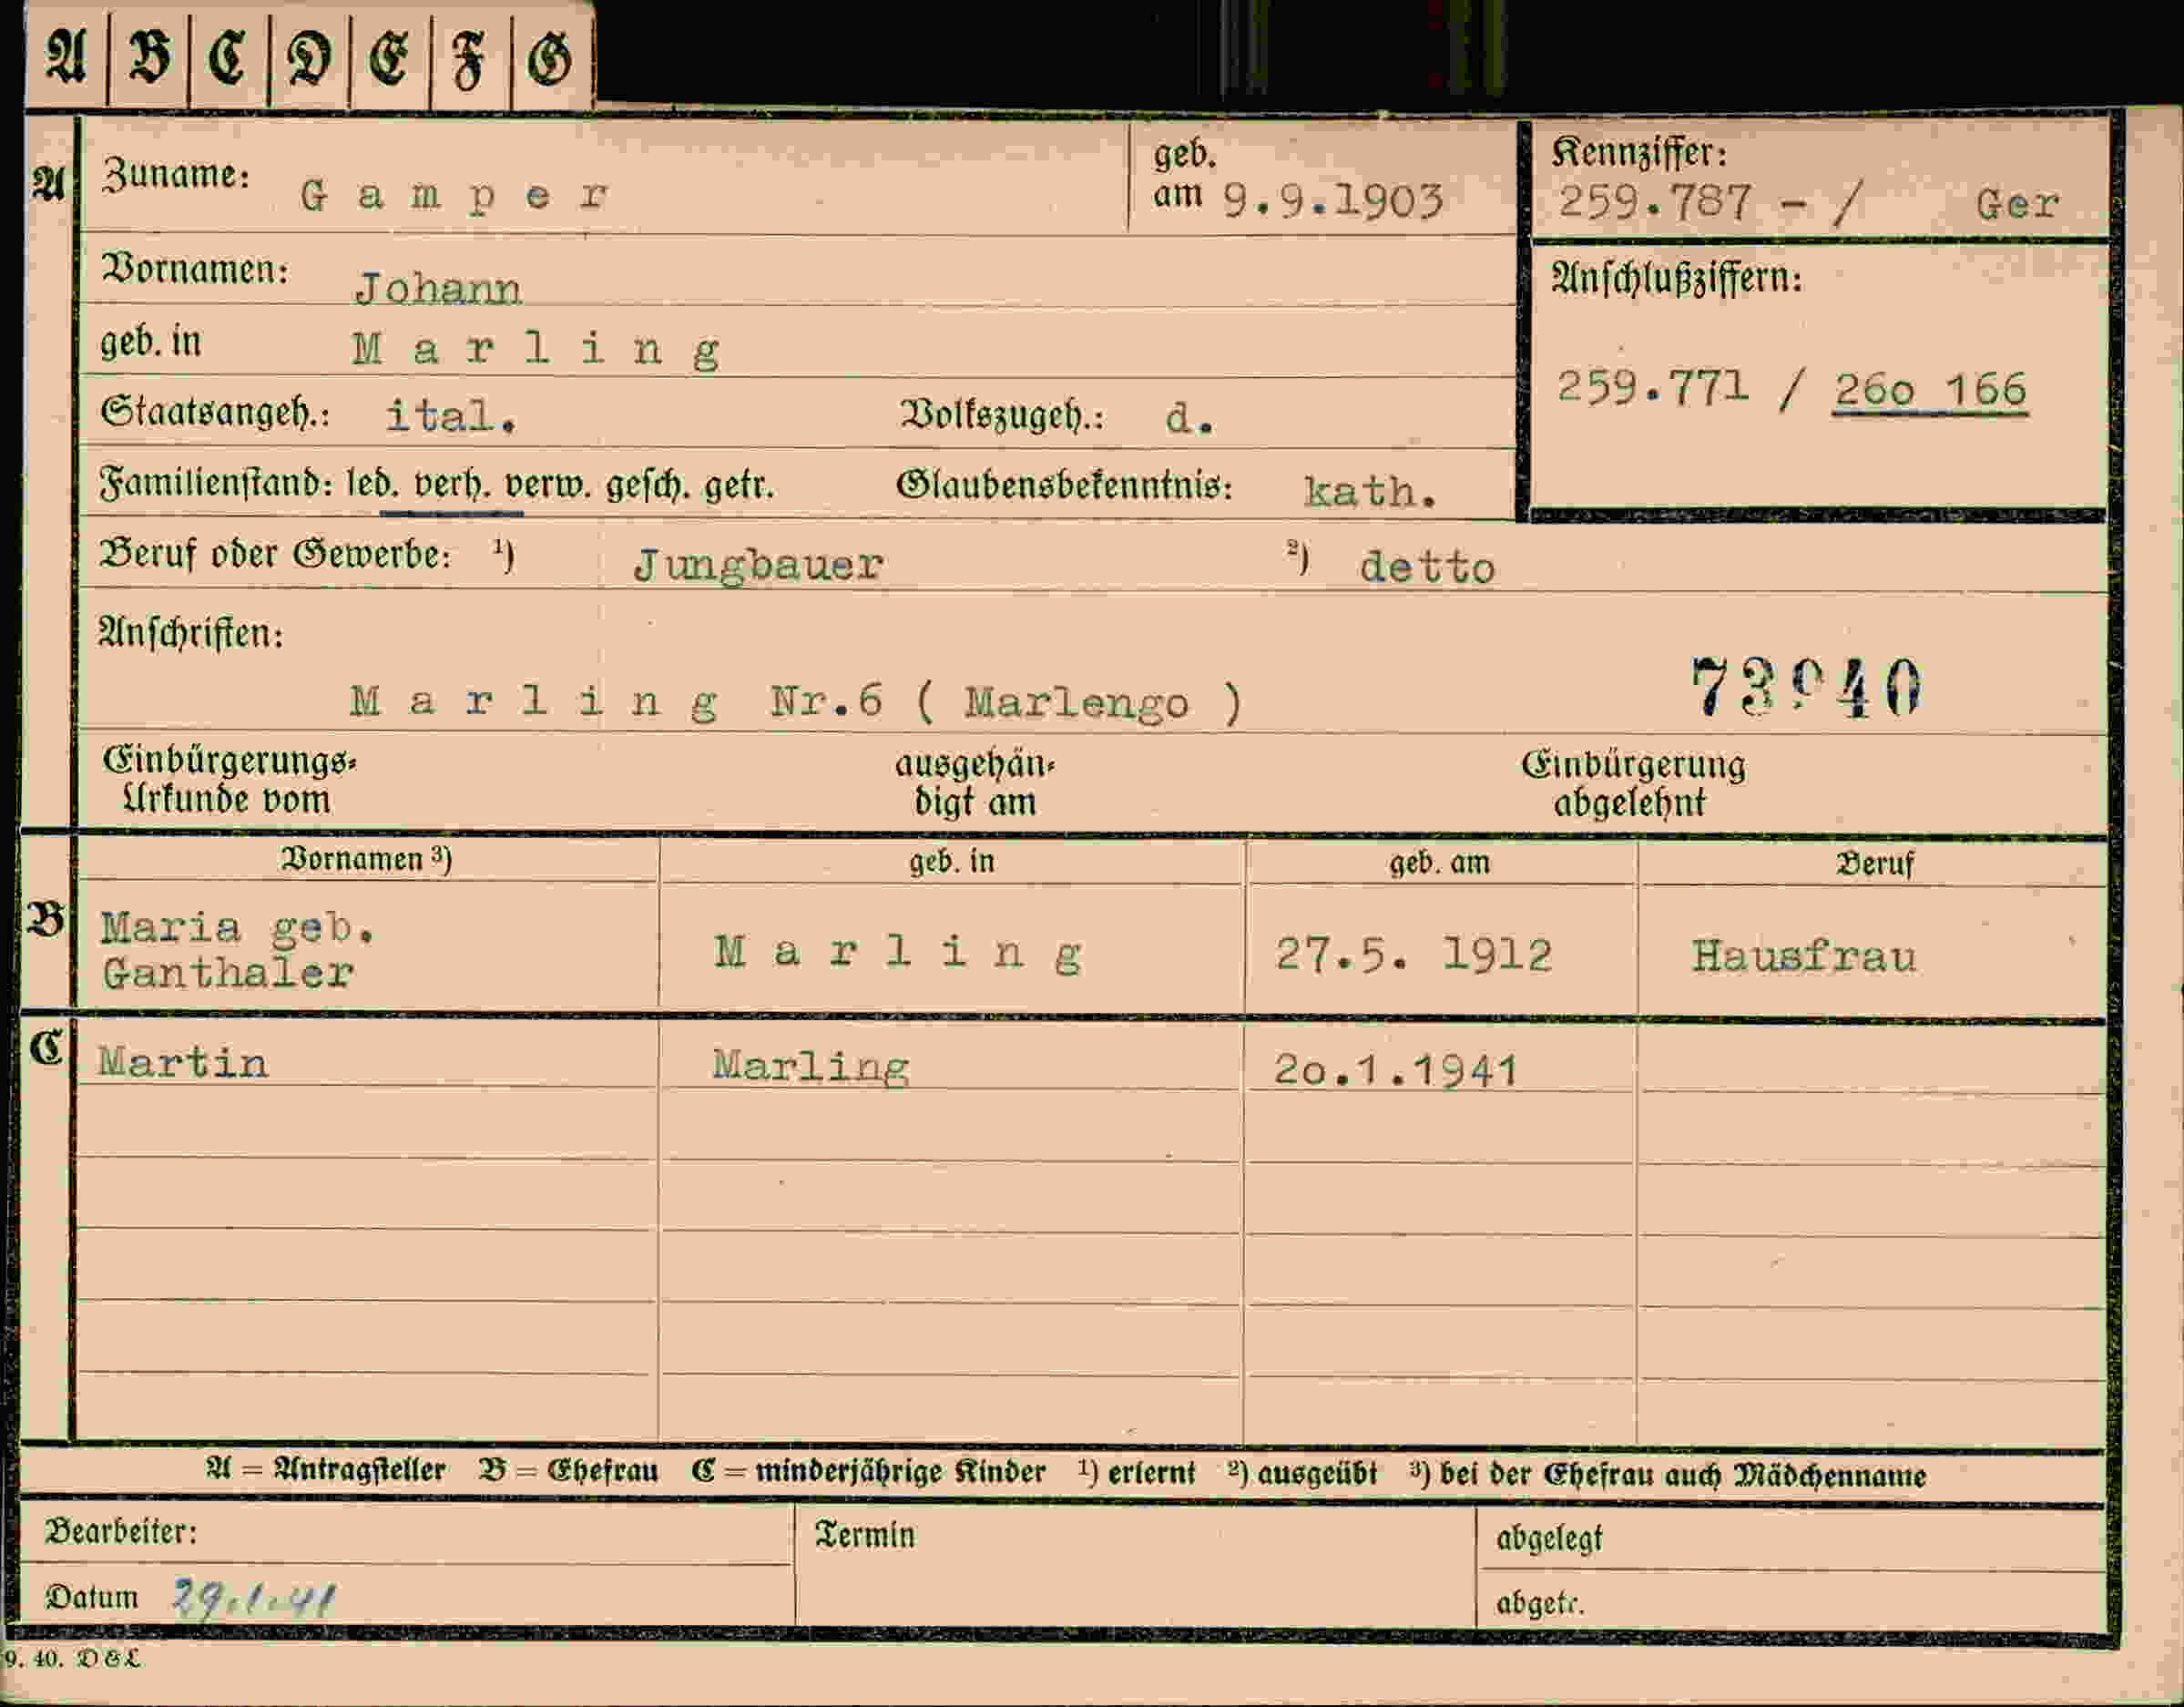 A B C D E F G
A Zuname: Gamper geb. am 9.9.1903
Kennziffer: 259.787 - / Ger
Vornamen: Johann
Anschlußziffern:
geb. in Marling
259.771 / 26o 166
Staatsangeh.: ital. Volkszugeh.: d.
Familienstand: led. verh. verw. gesch. getr. Glaubensbekenntnis: kath.
Beruf oder Gewerbe: ¹) Jungbauer ²) detto
Anschriften:
Marling Nr.6 ( Marlengo )
Einbürgerungs-Urkunde vom ausgehändigt am Einbürgerung abgelehnt
Vornamen ³) geb. in geb. am Beruf
B Maria geb.
Ganthaler Marling 27.5. 1912 Hausfrau
C Martin Marling 2o.1.1941
A = Antragsteller B = Ehefrau C = minderjährige Kinder ¹) erlernt ²) ausgeübt ³) bei der Ehefrau auch Mädchenname
Bearbeiter: Termin abgelegt
Datum 29.1.41 abgetr.
9. 40. D & L